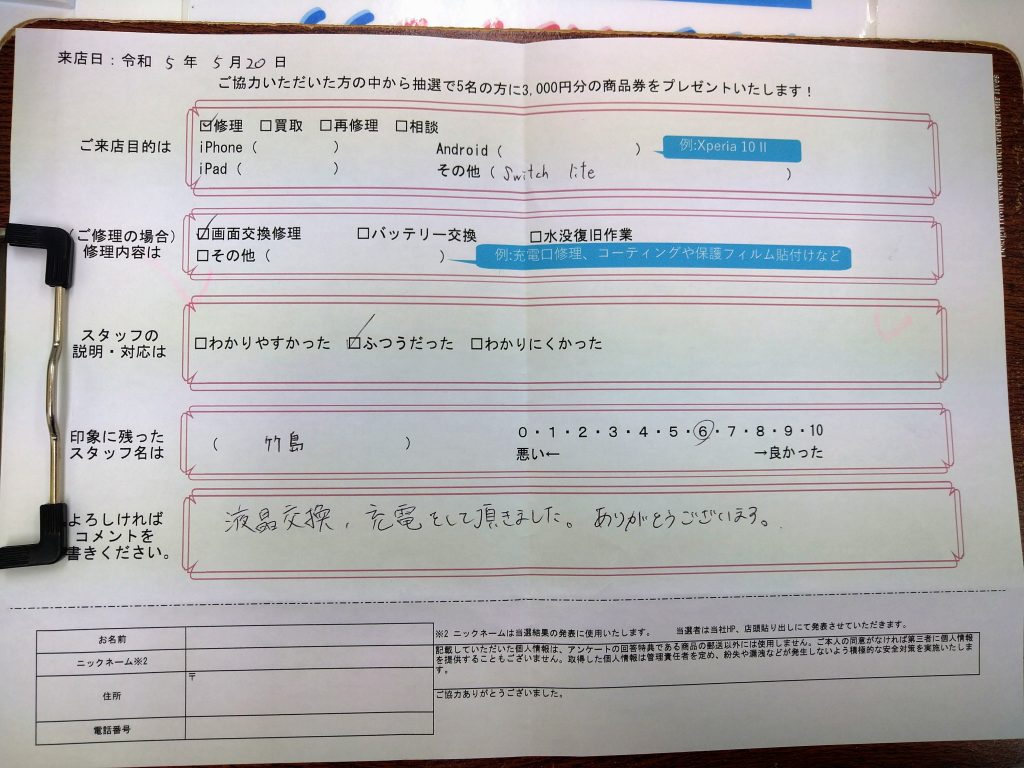 来店日：令和 5 年 5 月 20 日
ご協力いただいた方の中から抽選で5名の方に3,000円分の商品券をプレゼントいたします！
ご来店目的は
☑修理 □買取 □再修理 □相談
iPhone（ ） Android（ ） 例:Xperia 10 II
iPad（ ） その他（ Switch lite ）
（ご修理の場合）
修理内容は
☑画面交換修理 □バッテリー交換 □水没復旧作業
□その他（ ） 例:充電口修理、コーティングや保護フィルム貼付けなど
スタッフの
説明・対応は
□わかりやすかった ☑ふつうだった □わかりにくかった
印象に残った
スタッフ名は
（ 竹島 ）
0・1・2・3・4・5・6・7・8・9・10
悪い← →良かった
よろしければ
コメントを
書きください。
液晶交換、充電をして頂きました。ありがとうございます。
お名前
ニックネーム※2
住所 〒
電話番号
※2 ニックネームは当選結果の発表に使用いたします。 当選者は当社HP、店頭貼り出しにて発表させていただきます。
記載していただいた個人情報は、アンケートの回答特典である商品の郵送以外には使用しません。ご本人の同意がなければ第三者に個人情報
を提供することもございません。取得した個人情報は管理責任者を定め、紛失や漏洩などが発生しないよう積極的な安全対策を実施いたしま
す。
ご協力ありがとうございました。